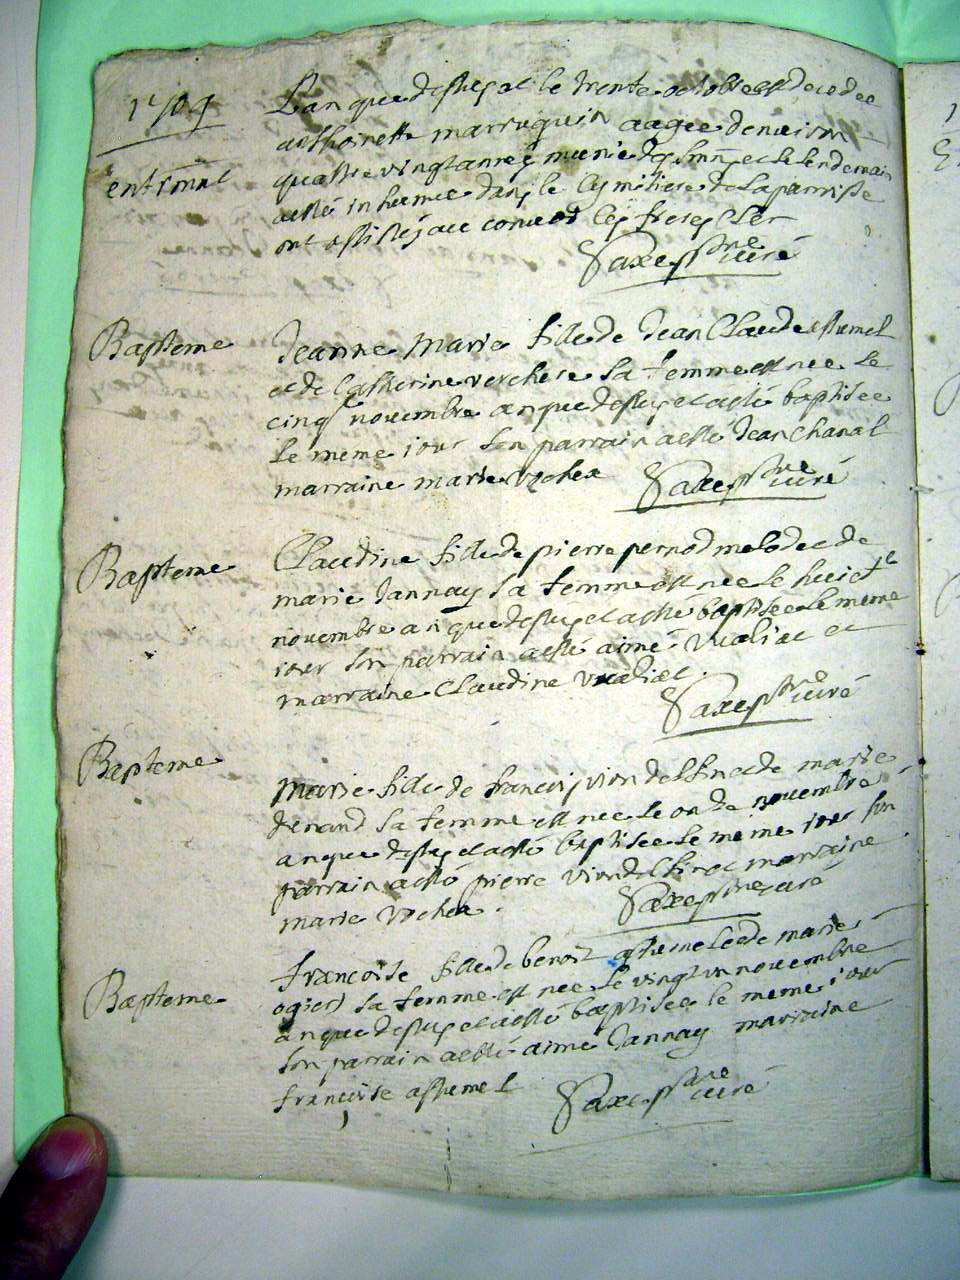 1709
L'an que dessus et le trente octobre est decedee
anthoinette marruquin aagee denviron
entermt
quattre vingt annees munie des Smens et le lendemain
a esté inhumée dans le Cymitiere de La parroisse
ont assistés au convoi les freres Ler
Saxe pbre curé
Bapteme
Jeanne Marie fille de Jean Claude asthumel
et de Catherine verchere sa femme est née le
cinq novembre an que dessus et a esté baptisee
le meme jour son parrain a esté Jean Chanal
marraine marie
Saxe pbre curé
Bapteme
Claudine fille de pierre pernod melod et de
marie Jannay sa femme est nee le huict
novembre an que dessus et a esté baptisee le meme
jour son parrain a esté aimé vualiat et
marraine Claudine vualiat.
Saxe pbre curé
Bapteme
Marie fille de francois viondelphin et de marie
sa femme est nee le onze novembre
an que dessus et a esté baptisee le meme jour son
parrain a esté pierre viondelphin et marraine
marie
Saxe pbre curé
Bapteme
francoise fille de benoit et de marie
ogier sa femme est nee le vingt un novembre
an que dessus et a esté baptisee le meme jour
son parrain a esté aimé Jannay marraine
francoise asthumel
Saxe pbre curé